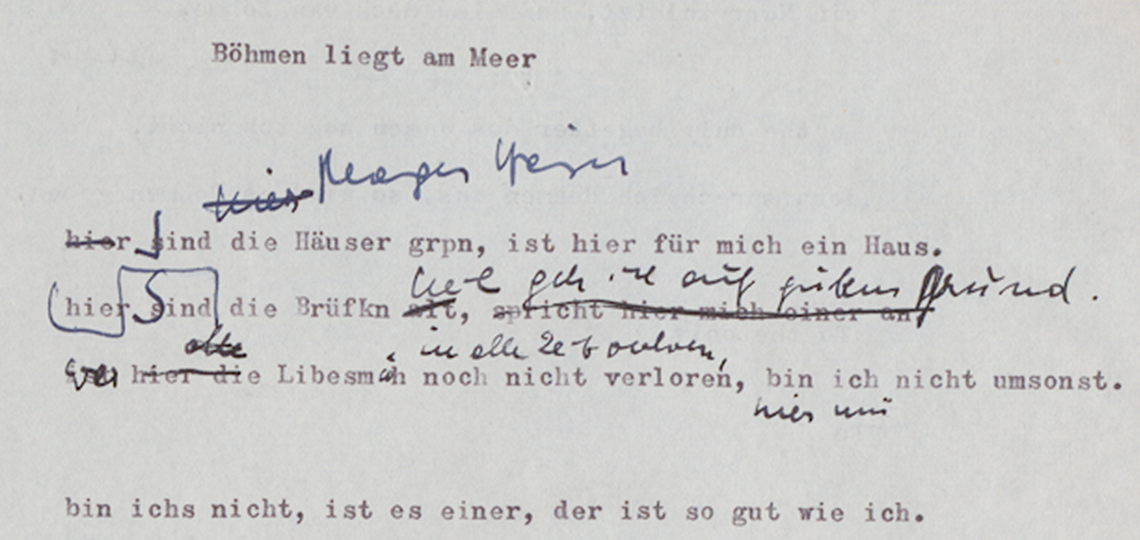 Böhmen liegt am Meer
hier
hier Sind die Häuser grpn, ist hier für mich ein Haus.
geh ich auf guten Grund.
hier Sind die Brüfkn alt, spricht hier mich einer an
alte in alle Zeit verloren,
hier die Libesmüh noch nicht verloren, bin ich nicht umsonst.
hier
bin ichs nicht, ist es einer, der ist so gut wie ich.